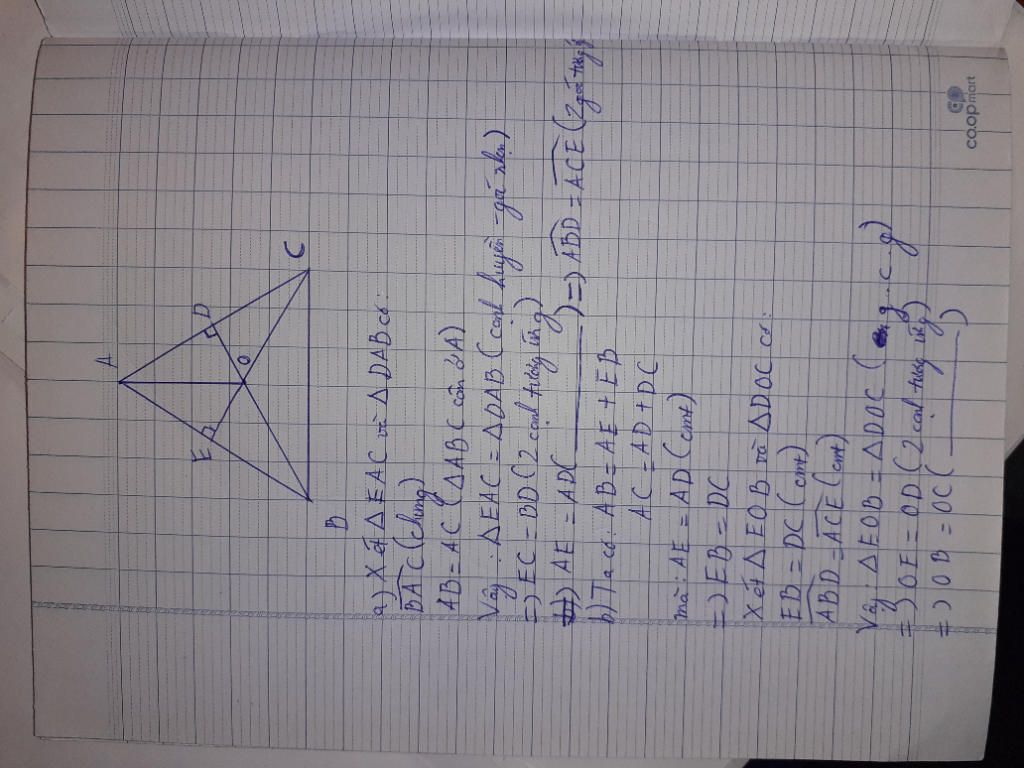 A
E
D
O
B
C
a) Xét △EAC và △DAB có:
BAC (chung)
AB = AC (△ABC cân ở A)
Vậy: △EAC = △DAB (cạnh huyền - góc nhọn)
=) EC = BD (2 cạnh tương ứng)
=) AE = AD( ——— ) =) ABD = ACE (2 góc tương ứ
b) Ta có: AB = AE + EB
AC = AD + DC
mà: AE = AD (cmt)
=) EB = DC
Xét △EOB và △DOC có:
EB = DC (cmt)
ABD = ACE (cmt)
Vậy: △EOB = △DOC ( g.c.g)
=) OE = OD (2 cạnh tương ứng)
=) OB = OC ( ——— )
co.opmart